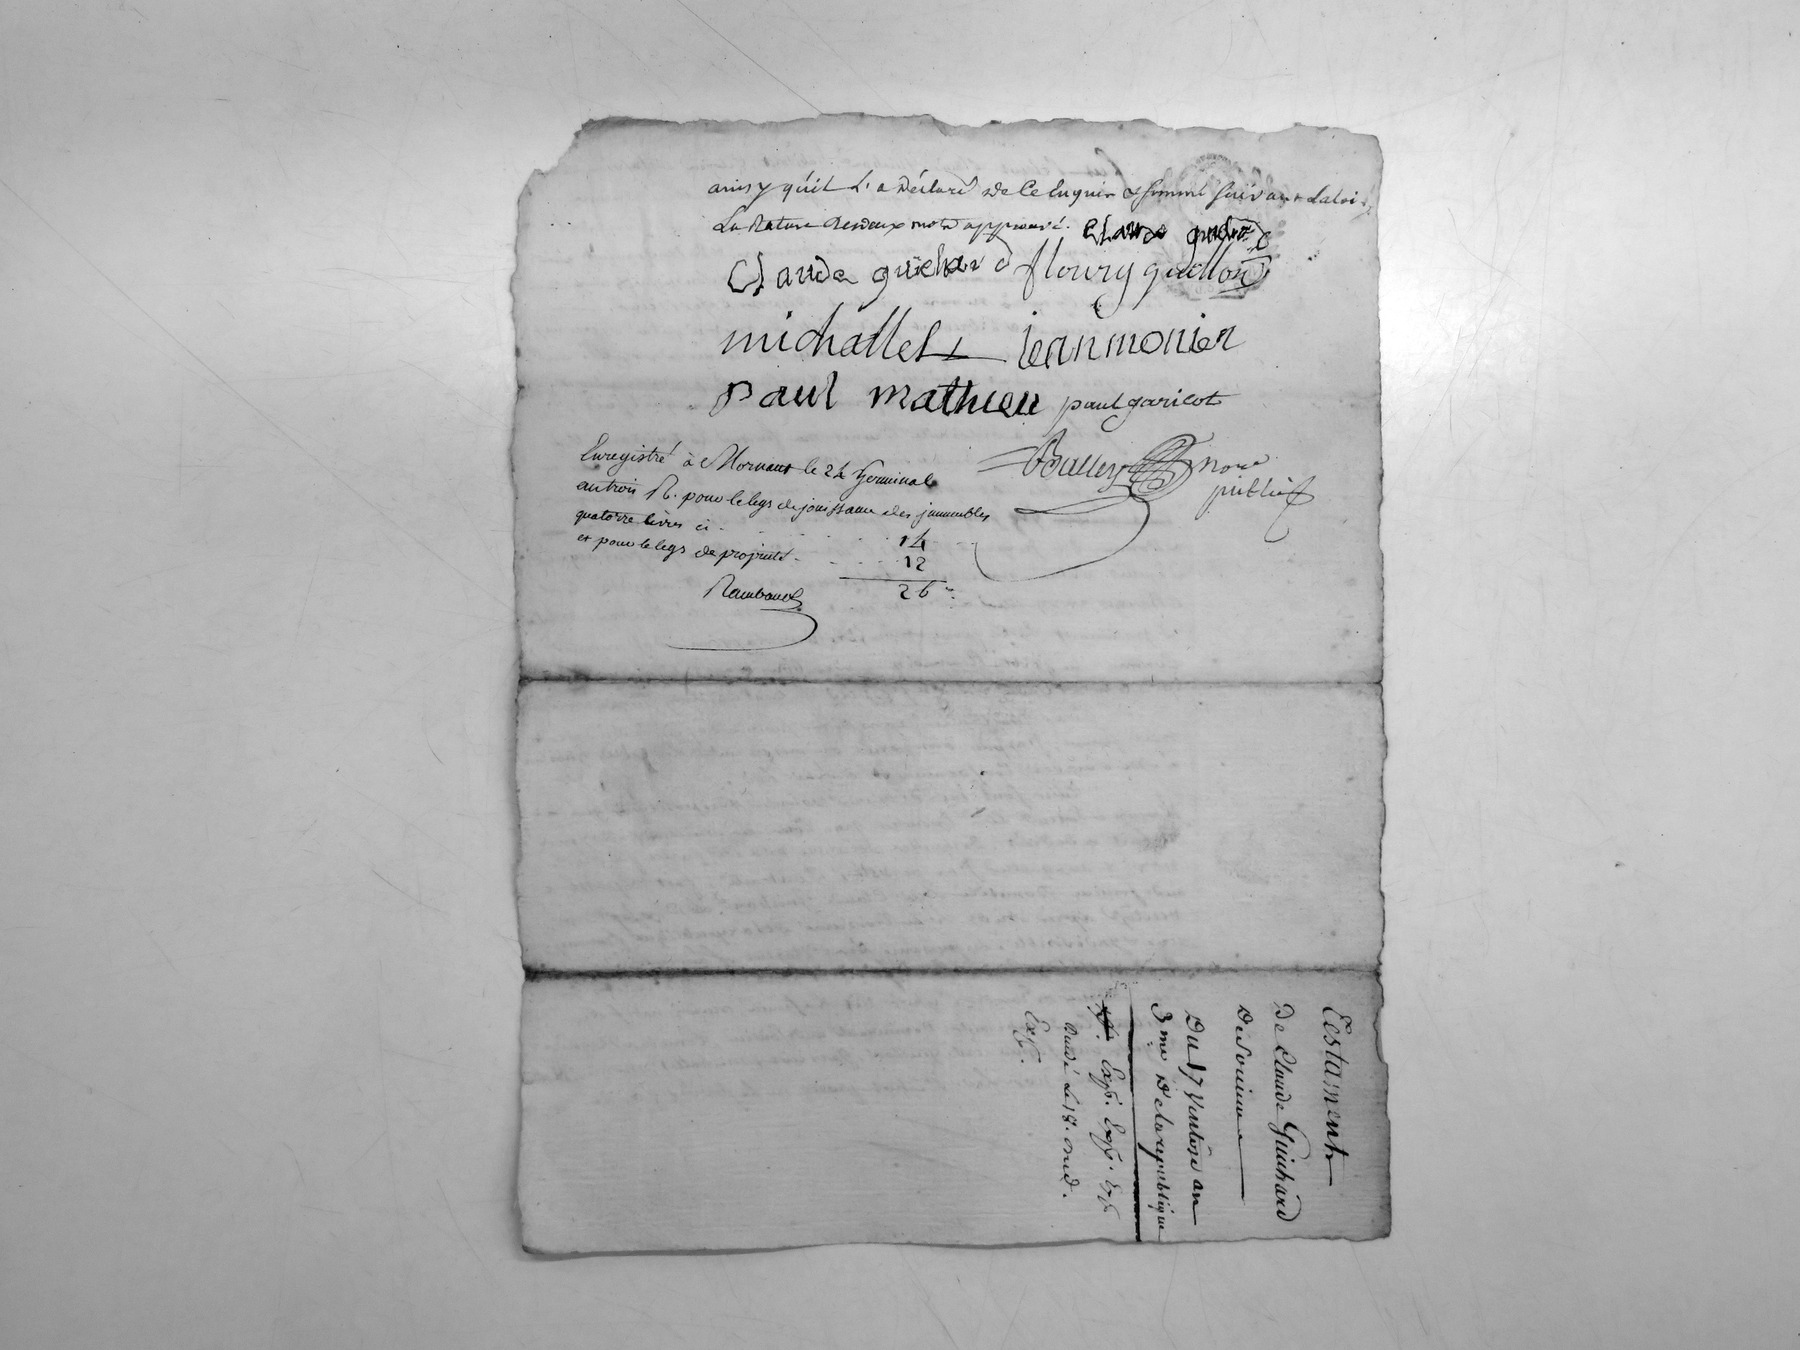 ainsy qu'il l'a déclaré de ce enquis & sommé suivant la loi
La Rature de deux mots approuvé. Claude
Claude guichard fleury guillon
michallet jean monier
paul mathieu paul garicot
Enregistré à Mornant le 24 Germinal
an trois R. pour le legs de jouissance des immeubles
quatorze livres ci 14
et pour le legs de propriété 12
26
Rambaud
Balley no.re
public
Testament
De Claude Guichard
De
Du 17 Ventôse an
3me De la republique
Exp. Exp. Exp.
le 18.
Exp.